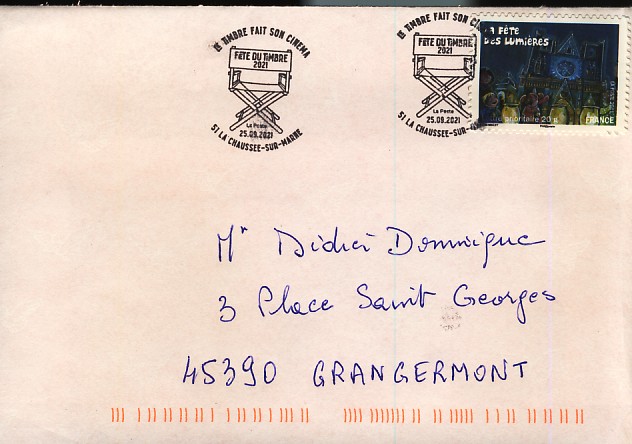 LE TIMBRE FAIT SON CINEMA
FÊTE DU TIMBRE
2021
La Poste
25.09.2021
51 LA CHAUSSEE-SUR-MARNE
LE TIMBRE FAIT SON CINEMA
FÊTE DU TIMBRE
2021
La Poste
25.09.2021
51 LA CHAUSSEE-SUR-
LA FÊTE
DES LUMIÈRES
prioritaire 20 g
FRANCE
Mr Didier Dominique
3 Place Saint Georges
45390 GRANGERMONT